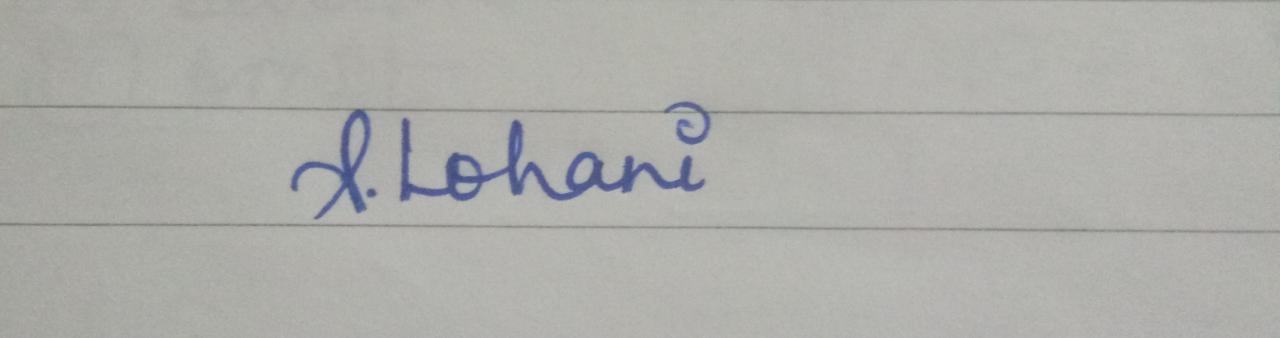 S. Lohani